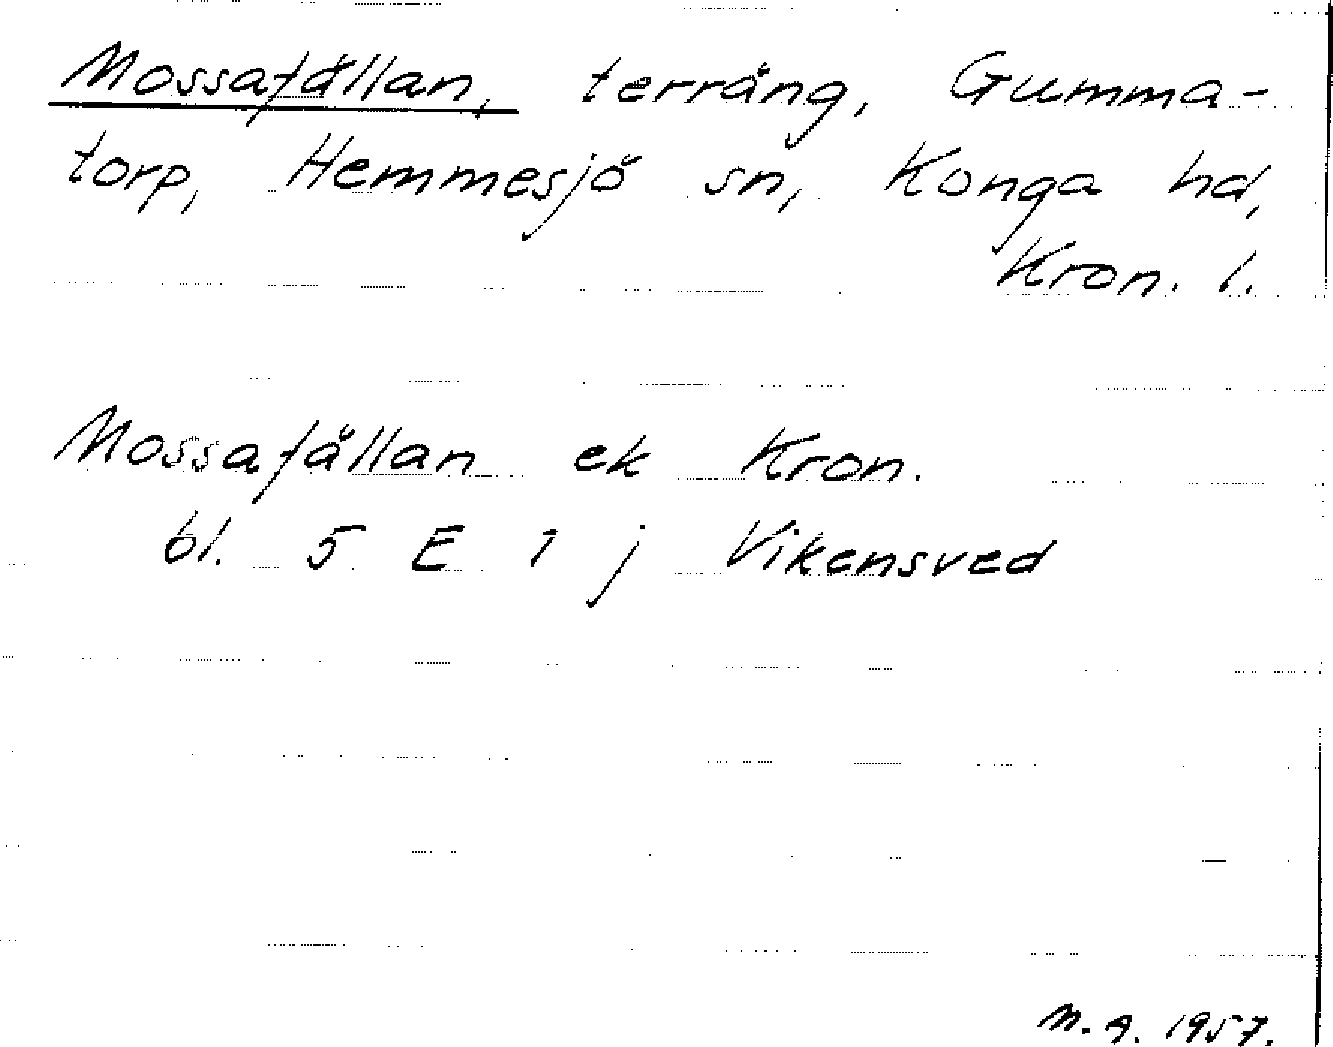 Mossafällan, terräng, Gumma-
torp, Hemmesjö sn, Konga hd,
Kron. l.
Mossafällan ek Kron.
bl. 5 E 1 j Vikensved
M. A. 1957.